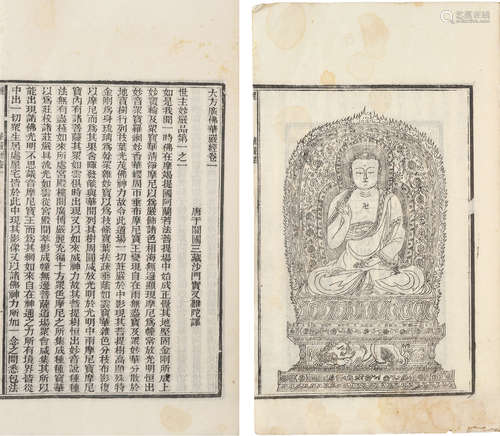 大方廣佛華嚴經卷一
唐于闐國三藏沙門實叉難陀譯
世主妙嚴品第一之一
如是我聞一時佛在摩竭提國阿蘭若法菩提場中始成正覺其地堅固金剛所成上
妙寶輪及眾寶華清淨摩尼以爲嚴飾諸色相海無邊顯現摩尼爲幢常放光明恒出
妙音眾寶羅網妙香華纓周帀垂布摩尼寶王變現自在雨無盡寶及眾妙華分散於
地寶樹行列枝葉光茂佛神力故令此道場一切莊嚴於中影現其菩提樹高顯殊特
金剛爲身瑠璃爲幹眾雜妙寶以爲枝條寶葉扶疏垂蔭如雲寶華雜色分枝布影復
以摩尼而爲其果含輝發焰與華間列其樹周圓咸放光明於光明中雨摩尼寶摩尼
寶內有諸菩薩其眾如雲俱時出現又以如來威神力故其菩提樹恒出妙音說種種
法無有盡極如來所處宮殿樓閣廣博嚴麗充徧十方眾色摩尼之所集成種種寶華
以爲莊校諸莊嚴具流光如雲從宮殿間萃影成幢無邊菩薩道場眾會咸集其所以
能出現諸佛光明不思議音摩尼寶王而爲其網如來自在神通之力所有境界皆從
中出一切眾生居處屋宅皆於此中現其影像又以諸佛神力所加一念之間悉包法
卍